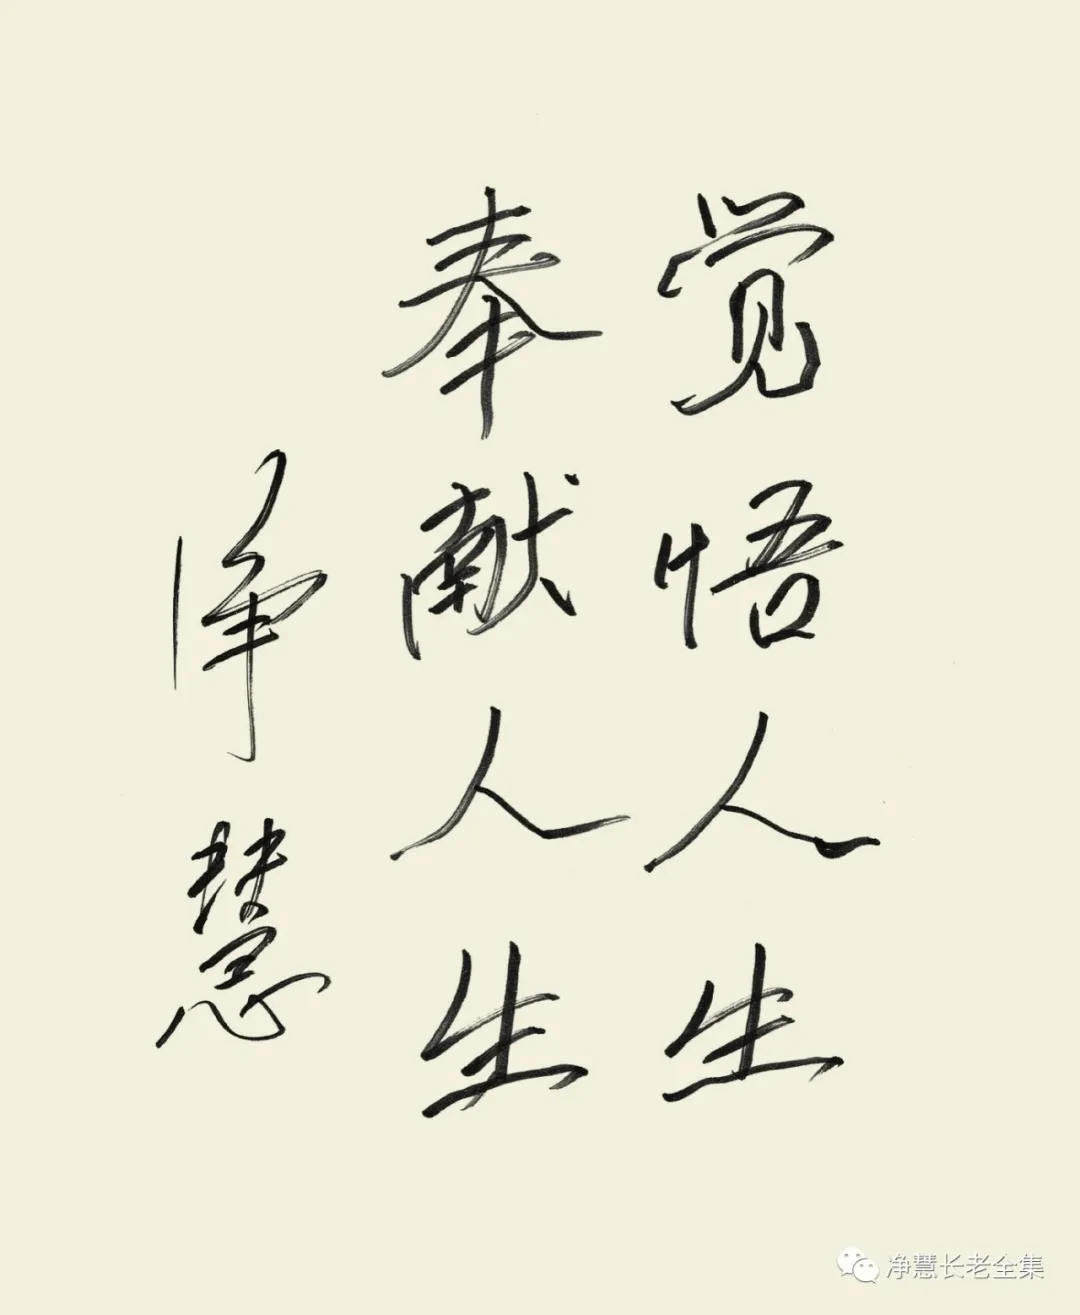 觉悟人生
奉献人生
净慧
净慧长老全集